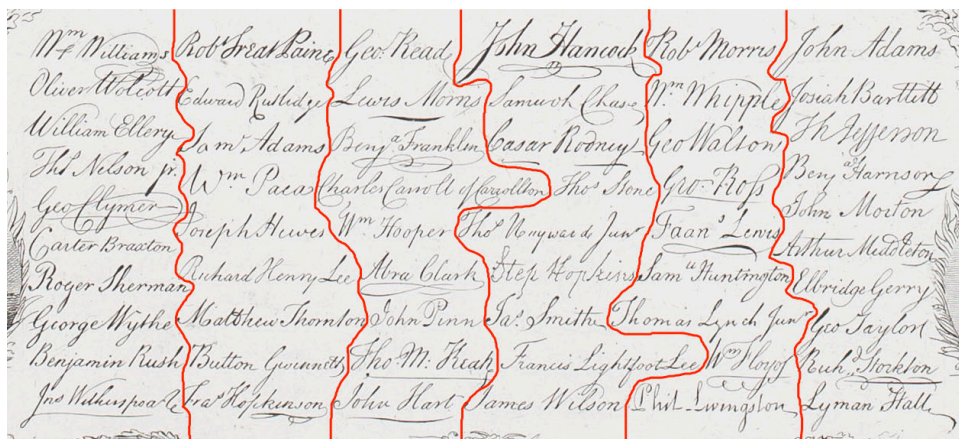 Wm Williams
Oliver Wolcott
William Ellery
Thos Nelson jr.
Geo Clymer
Carter Braxton
Roger Sherman
George Wythe
Benjamin Rush
Jno Witherspoon
Robt Treat Paine
Edward Rutledge
Sam Adams
Wm Paca
Joseph Hewes
Richard Henry Lee
Matthew Thornton
Button Gwinnett
Fras Hopkinson
Geo. Read
Lewis Morris
Benja Franklin
Charles Carroll of Carrollton
Wm Hooper
Abra Clark
John Penn
Tho M. Kean
John Hart
John Hancock
Samuel Chase
Caesar Rodney
Thos Stone
Thos Heyward Junr
Step Hopkins
Jas Smith
Francis Lightfoot Lee
James Wilson
Robt Morris
Wm Whipple
Geo Walton
Geo. Ross
Fran Lewis
Saml Huntington
Thomas Lynch Junr
Wm Floyd
Phil. Livingston
John Adams
Josiah Bartlett
Th Jefferson
Benj Harrison
John Morton
Arthur Middleton
Elbridge Gerry
Geo Taylor
Richd Stockton
Lyman Hall